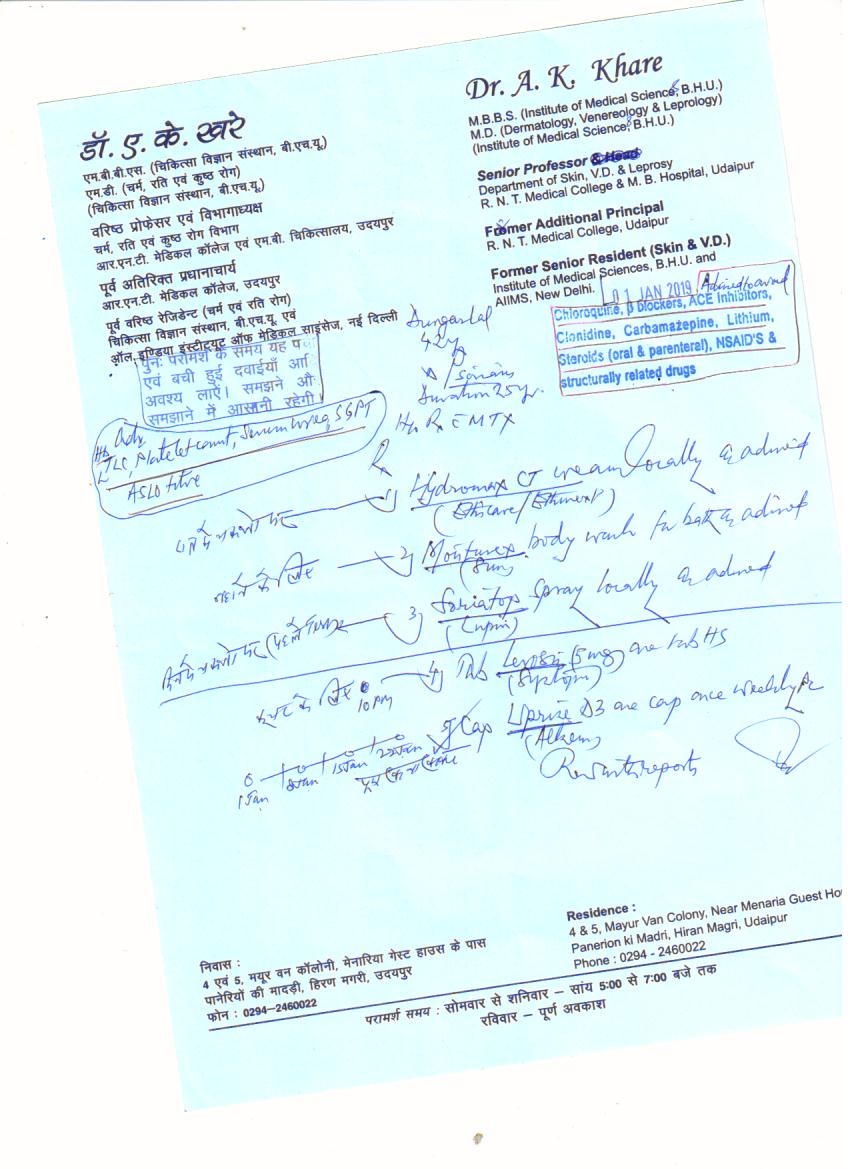 Dr. A. K. Khare
M.B.B.S. (Institute of Medical Science, B.H.U.)
M.D. (Dermatology, Venereology & Leprology)
(Institute of Medical Science, B.H.U.)
Senior Professor & Head
Department of Skin, V.D. & Leprosy
R. N. T. Medical College & M. B. Hospital, Udaipur
Former Additional Principal
R. N. T. Medical College, Udaipur
Former Senior Resident (Skin & V.D.)
Institute of Medical Sciences, B.H.U. and
AIIMS, New Delhi.
डॉ. ए. के. खरे
एम.बी.बी.एस. (चिकित्सा विज्ञान संस्थान, बी.एच.यू.)
एम.डी. (चर्म, रति एवं कुष्ठ रोग)
(चिकित्सा विज्ञान संस्थान, बी.एच.यू.)
वरिष्ठ प्रोफेसर एवं विभागाध्यक्ष
चर्म, रति एवं कुष्ठ रोग विभाग
आर.एन.टी. मेडिकल कॉलेज एवं एम.बी. चिकित्सालय, उदयपुर
पूर्व अतिरिक्त प्रधानाचार्य
आर.एन.टी. मेडिकल कॉलेज, उदयपुर
पूर्व वरिष्ठ रेजिडेन्ट (चर्म एवं रति रोग)
चिकित्सा विज्ञान संस्थान, बी.एच.यू. एवं
ऑल इण्डिया इंस्टीट्यूट ऑफ मेडिकल साइंसेज, नई दिल्ली
01 JAN 2019
Advised to avoid
Chloroquine, β blockers, ACE Inhibitors,
Clonidine, Carbamazepine, Lithium,
Steroids (oral & parenteral), NSAID'S &
structurally related drugs
पुनः परामर्श के समय यह
एवं बची हुई दवाईयाँ
अवश्य लाऐं। समझने
समझाने में आसानी रहेगी।
42y
Duration 25 yr.
MTX
Adv
Hb
TLC, Platelet count, Serum urea, SGPT
ASLO titre
1) Hydromax CT cream locally as advised
2) Moisturex body wash for bath as advised
नहाने के लिए
(Sun)
3) Soriatop spray locally as advised
(Lupin)
4) Tab (5mg) one tab HS
के लिए 10 PM
5) Cap Uprise D3 one cap once weekly
(Alkem)
1 Jan 8 Jan 15 Jan 22 Jan
Rev with reports
Residence :
4 & 5, Mayur Van Colony, Near Menaria Guest Ho
Panerion ki Madri, Hiran Magri, Udaipur
Phone : 0294 - 2460022
निवास :
4 एवं 5, मयूर वन कॉलोनी, मेनारिया गेस्ट हाउस के पास
पानेरियों की मादड़ी, हिरण मगरी, उदयपुर
फोन : 0294-2460022
परामर्श समय : सोमवार से शनिवार – सांय 5:00 से 7:00 बजे तक
रविवार – पूर्ण अवकाश